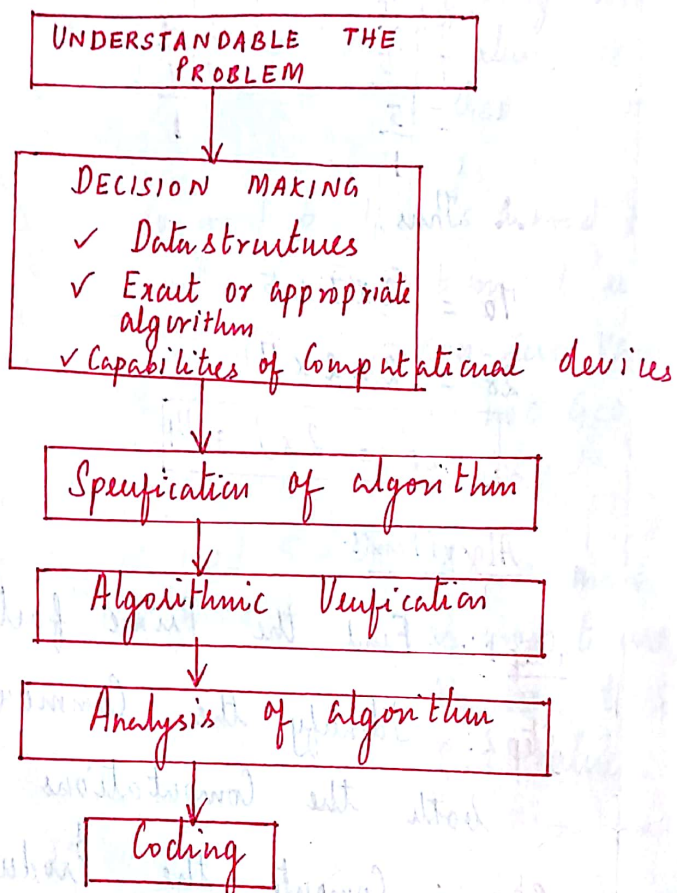 UNDERSTANDABLE THE
PROBLEM
DECISION MAKING
✓ Datastructures
✓ Exact or appropriate
algorithm
✓ Capabilities of Computational devices
Specification of algorithm
Algorithmic Verification
Analysis of algorithm
Coding